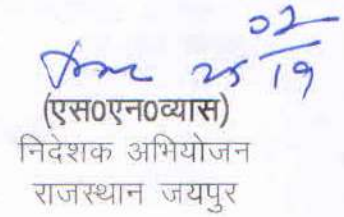 02
25 19
(एस0एन0व्यास)
निदेशक अभियोजन
राजस्थान जयपुर